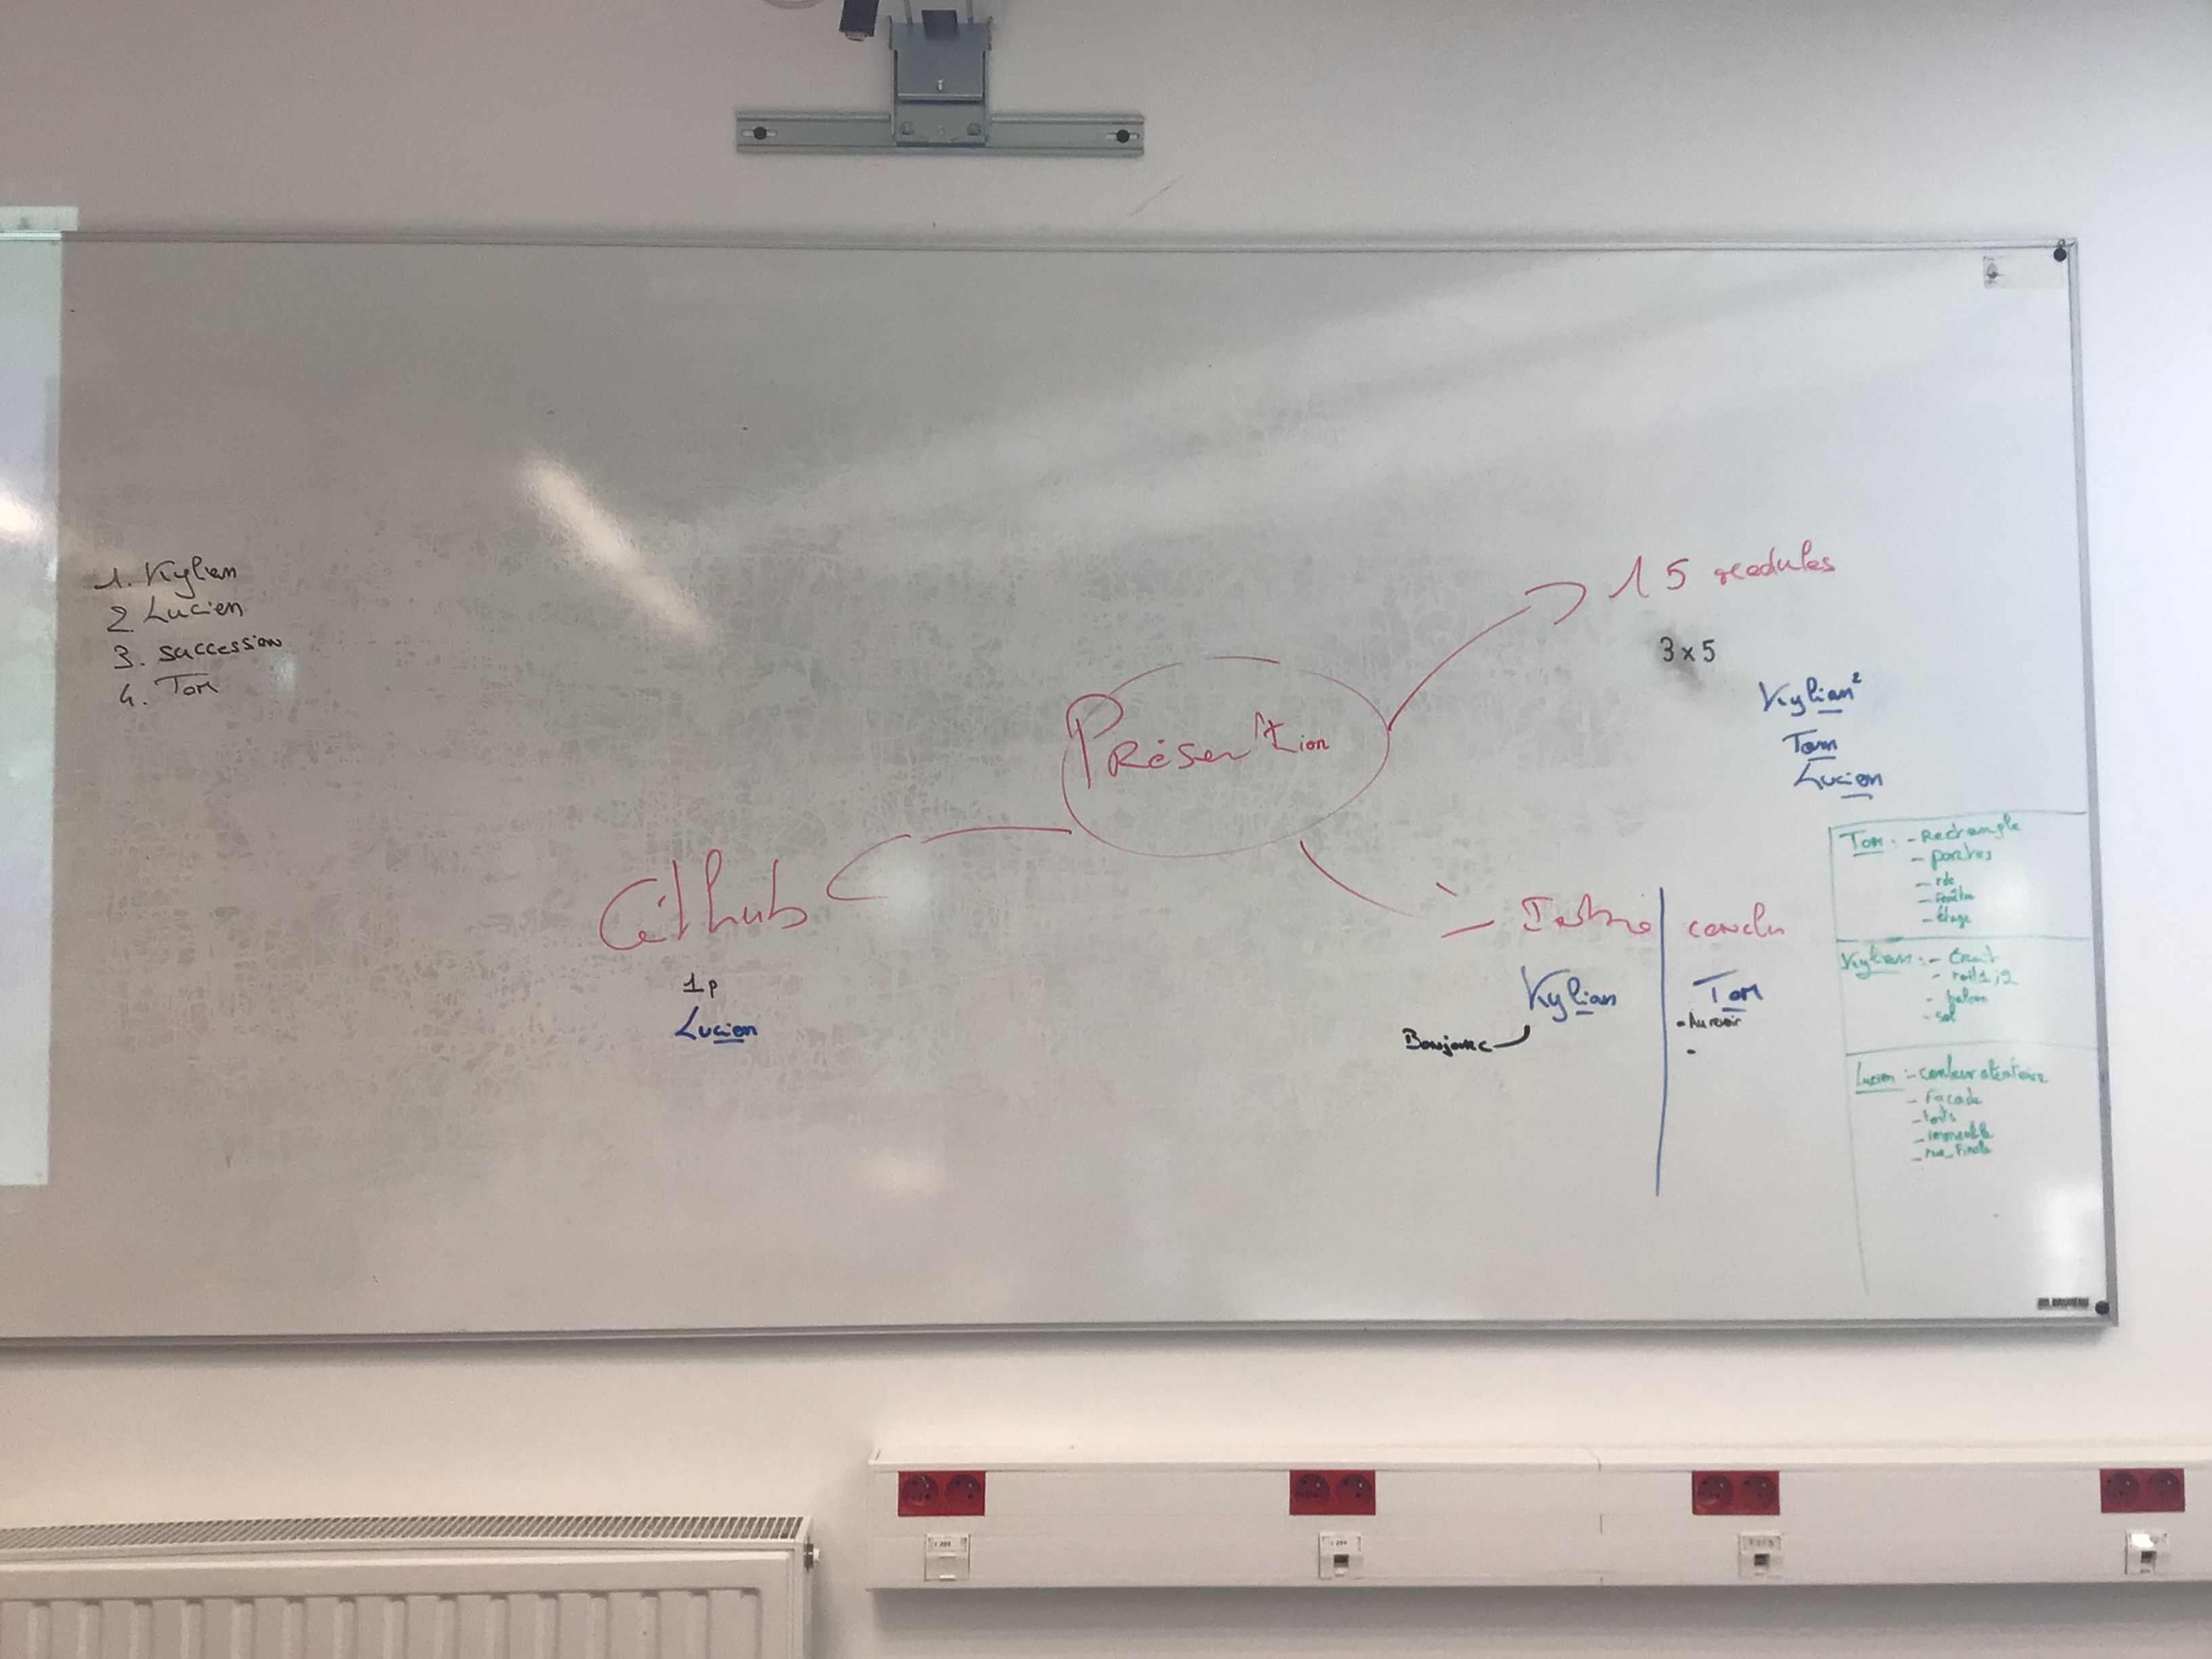 1. Kylian
2 Lucien
3. succession
4. Tom
Présentation
15 modules
3 x 5
Kylian²
Tom
Lucien
Github
1p
Lucien
Intro
conclu
Kylian
Tom
Bonjour
- Au revoir
-
Tom : - Rectangle
- portes
- rdc
- Fenêtre
- étage
Kylian : - trait
- toit1,2
- balcon
- sol
Lucien : - couleur aléatoire
- Facade
- toits
- immeuble
- rue_Finale